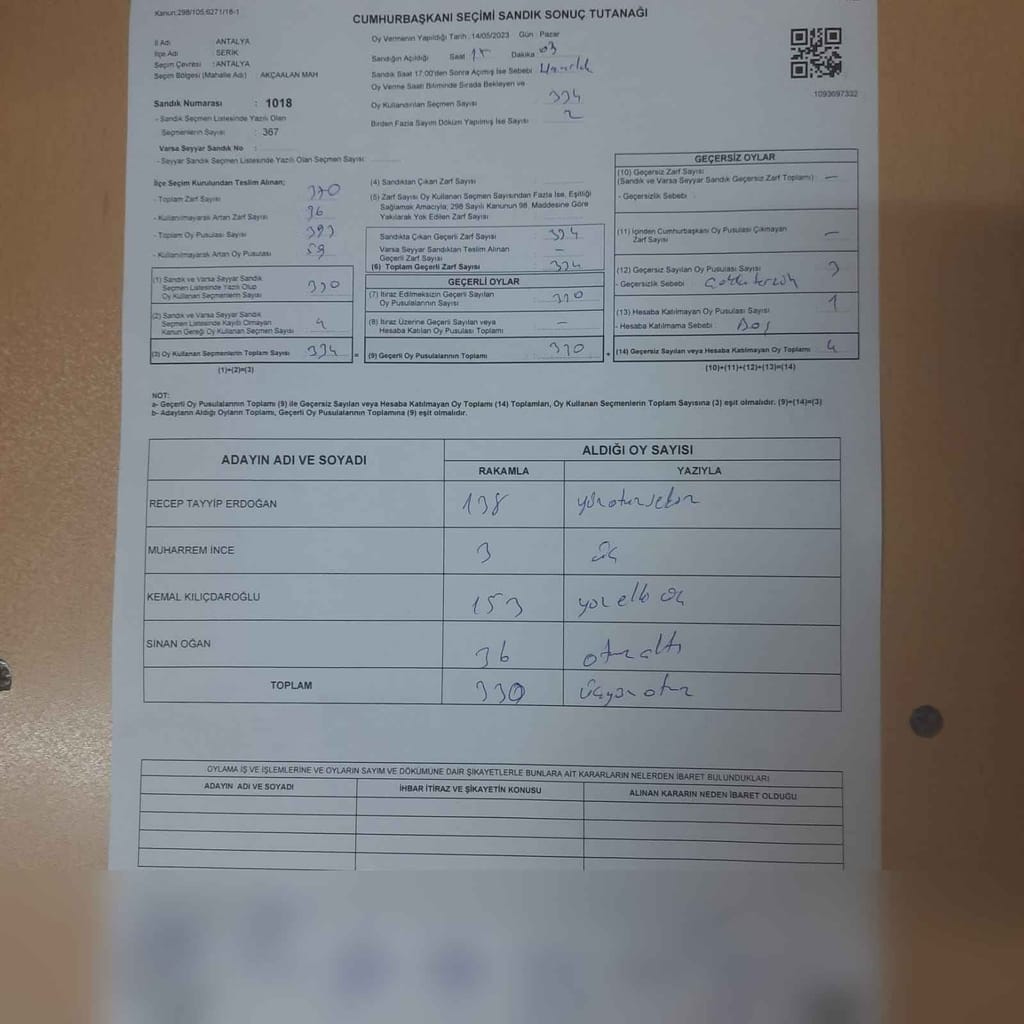 Kanun:298/105,6271/16-1
CUMHURBAŞKANI SEÇİMİ SANDIK SONUÇ TUTANAĞI
İl Adı ANTALYA
İlçe Adı SERİK
Seçim Çevresi : ANTALYA
Seçim Bölgesi (Mahalle Adı) AKÇAALAN MAH
Sandık Numarası : 1018
- Sandık Seçmen Listesinde Yazılı Olan
Seçmenlerin Sayısı : 367
Varsa Seyyar Sandık No :
- Seyyar Sandık Seçmen Listesinde Yazılı Olan Seçmen Sayısı
Oy Vermenin Yapıldığı Tarih : 14/05/2023 Gün Pazar
Sandığın Açıldığı Saat 17 Dakika 03
Sandık Saat 17.00'den Sonra Açımış İse Sebebi Hazırlık
Oy Verme Saati Bitiminde Sırada Bekleyen ve
Oy Kullandırılan Seçmen Sayısı 334
Birden Fazla Sayım Döküm Yapılmış İse Sayısı 2
1093697332
İlçe Seçim Kurulundan Teslim Alınan;
- Toplam Zarf Sayısı 370
- Kullanılmayarak Artan Zarf Sayısı 36
- Toplam Oy Pusulası Sayısı 393
- Kullanılmayarak Artan Oy Pusulası 59
(1) Sandık ve Varsa Seyyar Sandık
Seçmen Listesinde Yazılı Olup
Oy Kullanan Seçmenlerin Sayısı 330
(2) Sandık ve Varsa Seyyar Sandık
Seçmen Listesinde Kayıtlı Olmayan
Kanun Gereği Oy Kullanan Seçmen Sayısı 4
(3) Oy Kullanan Seçmenlerin Toplam Sayısı 334 =
(1)+(2)=(3)
(4) Sandıktan Çıkan Zarf Sayısı
(5) Zarf Sayısı Oy Kullanan Seçmen Sayısından Fazla İse, Eşitliği
Sağlamak Amacıyla; 298 Sayılı Kanunun 98. Maddesine Göre
Yakılarak Yok Edilen Zarf Sayısı
Sandıkta Çıkan Geçerli Zarf Sayısı 334
Varsa Seyyar Sandıktan Teslim Alınan
Geçerli Zarf Sayısı –
(6) Toplam Geçerli Zarf Sayısı 334
GEÇERLİ OYLAR
(7) İtiraz Edilmeksizin Geçerli Sayılan
Oy Pusulalarının Sayısı 330
(8) İtiraz Üzerine Geçerli Sayılan veya
Hesaba Katılan Oy Pusulası Toplamı –
(9) Geçerli Oy Pusulalarının Toplamı 330 +
GEÇERSİZ OYLAR
(10) Geçersiz Zarf Sayısı
(Sandık ve Varsa Seyyar Sandık Geçersiz Zarf Toplamı) –
- Geçersizlik Sebebi
(11) İçinden Cumhurbaşkanı Oy Pusulası Çıkmayan
Zarf Sayısı –
(12) Geçersiz Sayılan Oy Pusulası Sayısı 3
- Geçersizlik Sebebi
(13) Hesaba Katılmayan Oy Pusulası Sayısı 1
- Hesaba Katılmama Sebebi Boş
(14) Geçersiz Sayılan veya Hesaba Katılmayan Oy Toplamı 4
(10)+(11)+(12)+(13)=(14)
NOT:
a- Geçerli Oy Pusulalarının Toplamı (9) ile Geçersiz Sayılan veya Hesaba Katılmayan Oy Toplamı (14) Toplamları, Oy Kullanan Seçmenlerin Toplam Sayısına (3) eşit olmalıdır. (9)+(14)=(3)
b- Adayların Aldığı Oyların Toplamı, Geçerli Oy Pusulalarının Toplamına (9) eşit olmalıdır.
ADAYIN ADI VE SOYADI ALDIĞI OY SAYISI
RAKAMLA YAZIYLA
RECEP TAYYİP ERDOĞAN 138 yüzotuzsekiz
MUHARREM İNCE 3 üç
KEMAL KILIÇDAROĞLU 153 yüz elli üç
SİNAN OĞAN 36 otuz altı
TOPLAM 330 üçyüz otuz
OYLAMA İŞ VE İŞLEMLERİNE VE OYLARIN SAYIM VE DÖKÜMÜNE DAİR ŞİKAYETLERLE BUNLARA AİT KARARLARIN NELERDEN İBARET BULUNDUKLARI
ADAYIN ADI VE SOYADI İHBAR İTİRAZ VE ŞİKAYETİN KONUSU ALINAN KARARIN NEDEN İBARET OLDUĞU